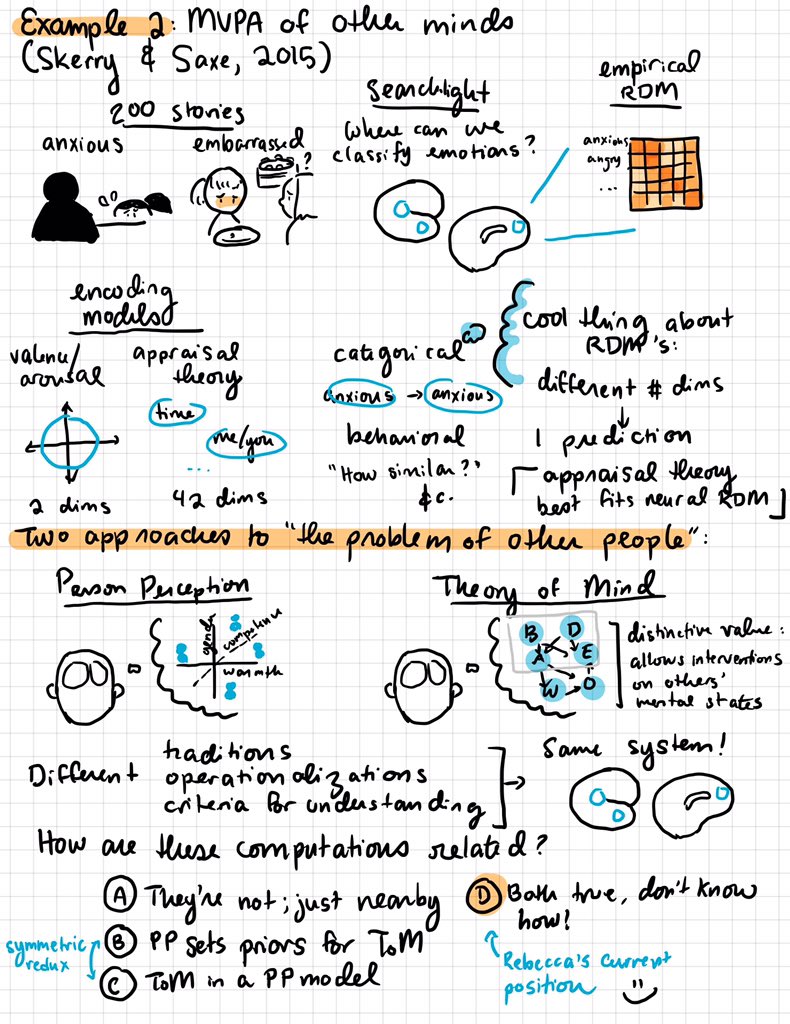 Example 2: MVPA of other minds
(Skerry & Saxe, 2015)
200 stories
anxious
embarrassed
?
Searchlight
Where can we
classify emotions?
empirical
RDM
anxious
angry
...
encoding
models
valence/
arousal
2 dims
appraisal
theory
time
me/you
...
42 dims
categorical
anxious → anxious
behavioral
"How similar?"
&c.
cool thing about
RDM's:
different # dims
↓
1 prediction
[appraisal theory
best fits neural RDM]
Two approaches to "the problem of other people":
Person Perception
gender
competence
warmth
Theory of Mind
B D
A E
W O
distinctive value:
allows interventions
on others'
mental states
Different
traditions
operationalizations
criteria for understanding
→ Same system!
How are these computations related?
A They're not; just nearby
B PP sets priors for ToM
C ToM in a PP model
symmetric
redux
D Both true, don't know
how!
Rebecca's current
position